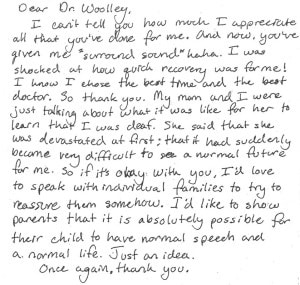 Dear Dr. Woolley,
I can't tell you how much I appreciate
all that you've done for me. And now, you've
given me "surround sound" haha. I was
shocked at how quick recovery was for me!
I know I chose the best time and the best
doctor. So thank you. My mom and I were
just talking about what it was like for her to
learn that I was deaf. She said that she
was devastated at first; that it had suddenly
became very difficult to see a normal future
for me. So if it's okay with you, I'd love
to speak with individual families to try to
reassure them somehow. I'd like to show
parents that it is absolutely possible for
their child to have normal speech and
a normal life. Just an idea.
Once again, thank you.